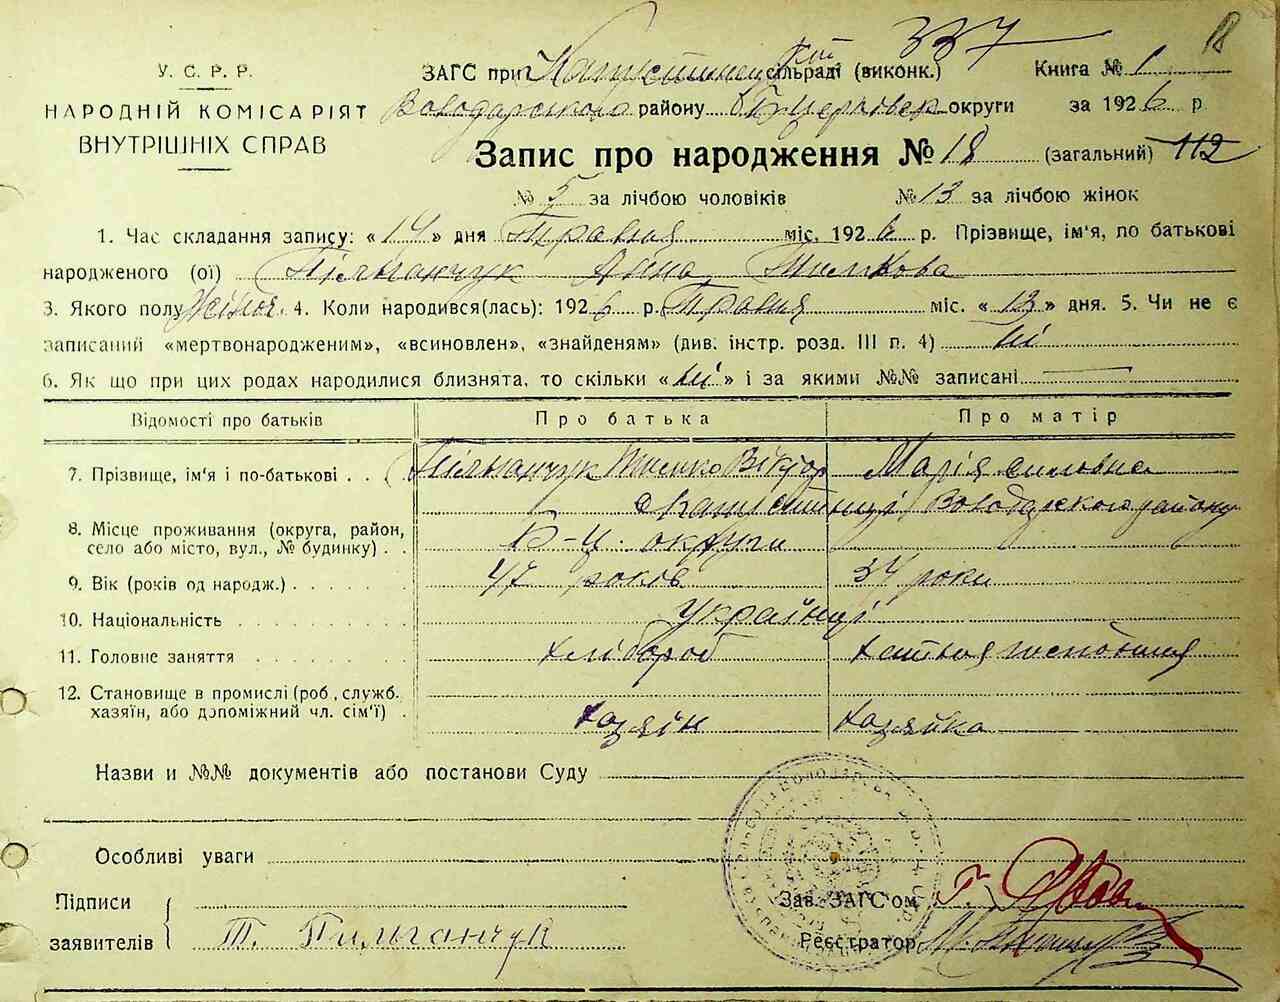 337
18
У. С. Р. Р.
НАРОДНІЙ КОМІСАРІЯТ
ВНУТРІШНІХ СПРАВ
ЗАГС при Капустинецькій сільраді (виконк.) Книга № 1
Володарського району Б Церковск округи за 1926 р
Запис про народження № 18 (загальний) 112
№ 5 за лічбою чоловіків № 13 за лічбою жінок
1. Час складання запису: «14» дня Травня міс. 1926 р. Прізвище, ім'я, по батькові
народженого (ої) Пільганчук Анна Тимкова
3. Якого полу Жіноч. 4. Коли народився(лась): 1926 р. Травня міс. «13» дня. 5. Чи не є
записаний «мертвонародженим», «всиновлен», «знайденям» (див. інстр. розд. III п. 4) ні
6. Як що при цих родах народилися близнята, то скільки «ні» і за якими №№ записані
Відомості про батьків Про батька Про матір
7. Прізвище, ім'я і по-батькові Пільганчук Тимко Віктор Марія
с Капустинці Володарского району
8. Місце проживання (округа, район, Б-Ц. округи
село або місто, вул., № будинку)
9. Вік (років од народж.) 47 років 34 роки
10. Національність Українці
11. Головне заняття хлібороб хатня господиня
12. Становище в промислі (роб, служб.
хазяїн, або допоміжний чл. сім'ї) хазяїн хазяйка
Назви и №№ документів або постанови Суду
Особливі уваги
Підписи Зав. ЗАГС'ом
заявителів Т. Пильганчук Реєстратор